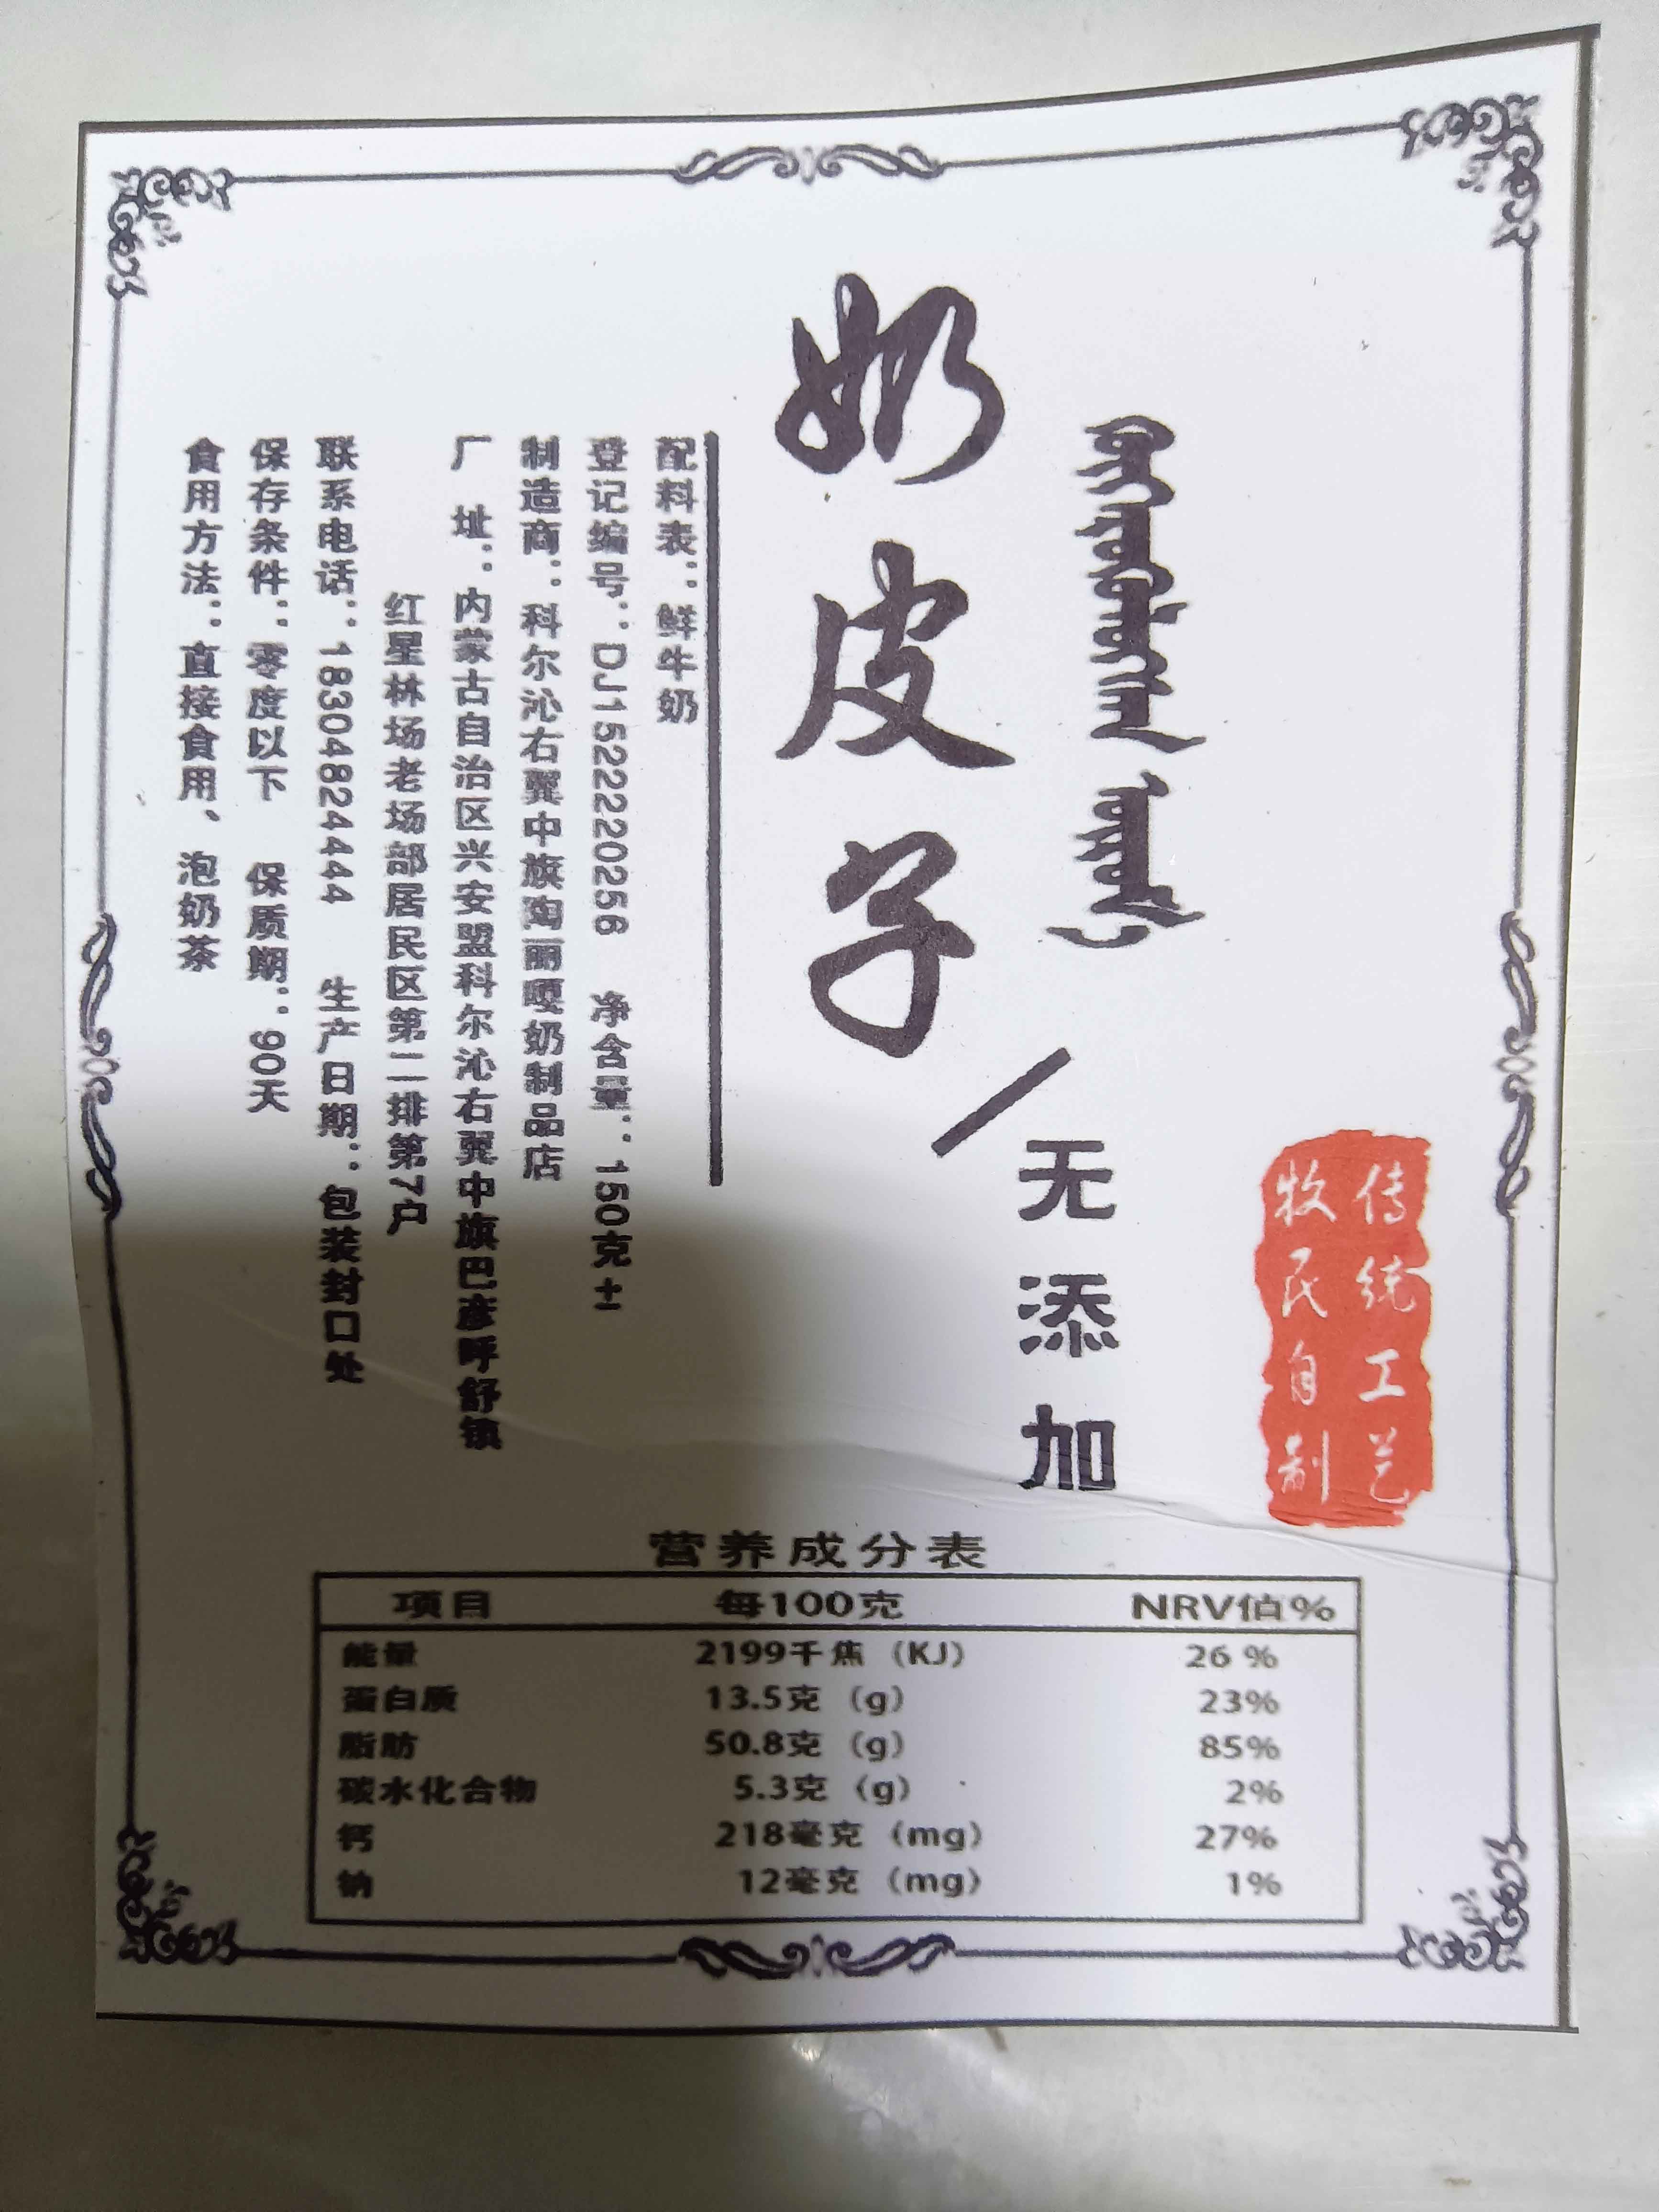 传统工艺
牧民自制
奶皮子/无添加
配料表：鲜牛奶
登记编号：DJ1522220256 净含量：150克±
制造商：科尔沁右翼中旗陶丽嘎奶制品店
厂 址：内蒙古自治区兴安盟科尔沁右翼中旗巴彦呼舒镇
红星林场老场部居民区第二排第7户
联系电话：18304824444 生产日期：包装封口处
保存条件：零度以下 保质期：90天
食用方法：直接食用、泡奶茶
营养成分表
项目 每100克 NRV值%
能量 2199千焦（KJ） 26 %
蛋白质 13.5克（g） 23%
脂肪 50.8克（g） 85%
碳水化合物 5.3克（g） 2%
钙 218毫克（mg） 27%
钠 12毫克（mg） 1%